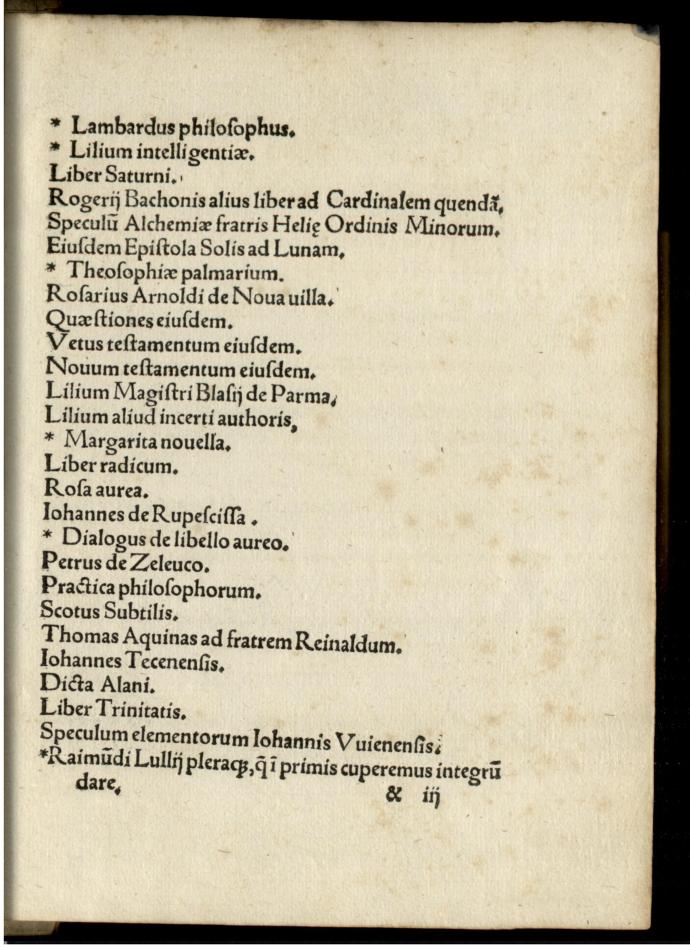 * Lambardus philoſophus.
* Lilium intelligentiæ.
Liber Saturni.
Rogerij Bachonis alius liber ad Cardinalem quendã.
Speculũ Alchemiæ fratris Helię Ordinis Minorum.
Eiuſdem Epiſtola Solis ad Lunam.
* Theoſophiæ palmarium.
Roſarius Arnoldi de Noua uilla.
Quæſtiones eiuſdem.
Vetus teſtamentum eiuſdem.
Nouum teſtamentum eiuſdem.
Lilium Magiſtri Blaſij de Parma.
Lilium aliud incerti authoris,
* Margarita nouella.
Liber radicum.
Roſa aurea.
Iohannes de Rupeſciſſa .
* Dialogus de libello aureo.
Petrus de Zeleuco.
Practica philoſophorum.
Scotus Subtilis.
Thomas Aquinas ad fratrem Reinaldum.
Iohannes Tecenenſis.
Dicta Alani.
Liber Trinitatis.
Speculum elementorum Iohannis Vuienenſis.
*Raimũdi Lullij pleraqꝫ, q̃ ĩ primis cuperemus integrũ
dare.
& iij